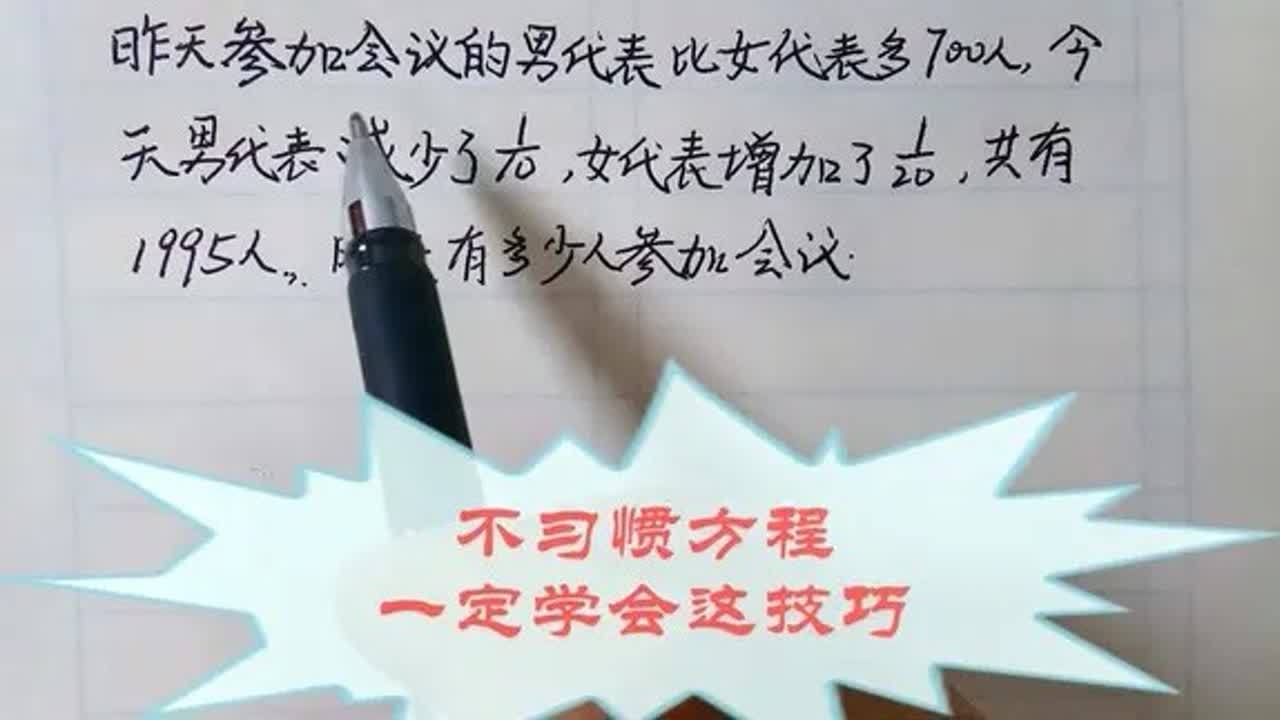 昨天参加会议的男代表比女代表多700人,今
天男代表减少了1/10,女代表增加了1/20,共有
1995人,,. 有多少人参加会议.
不习惯方程
一定学会这技巧